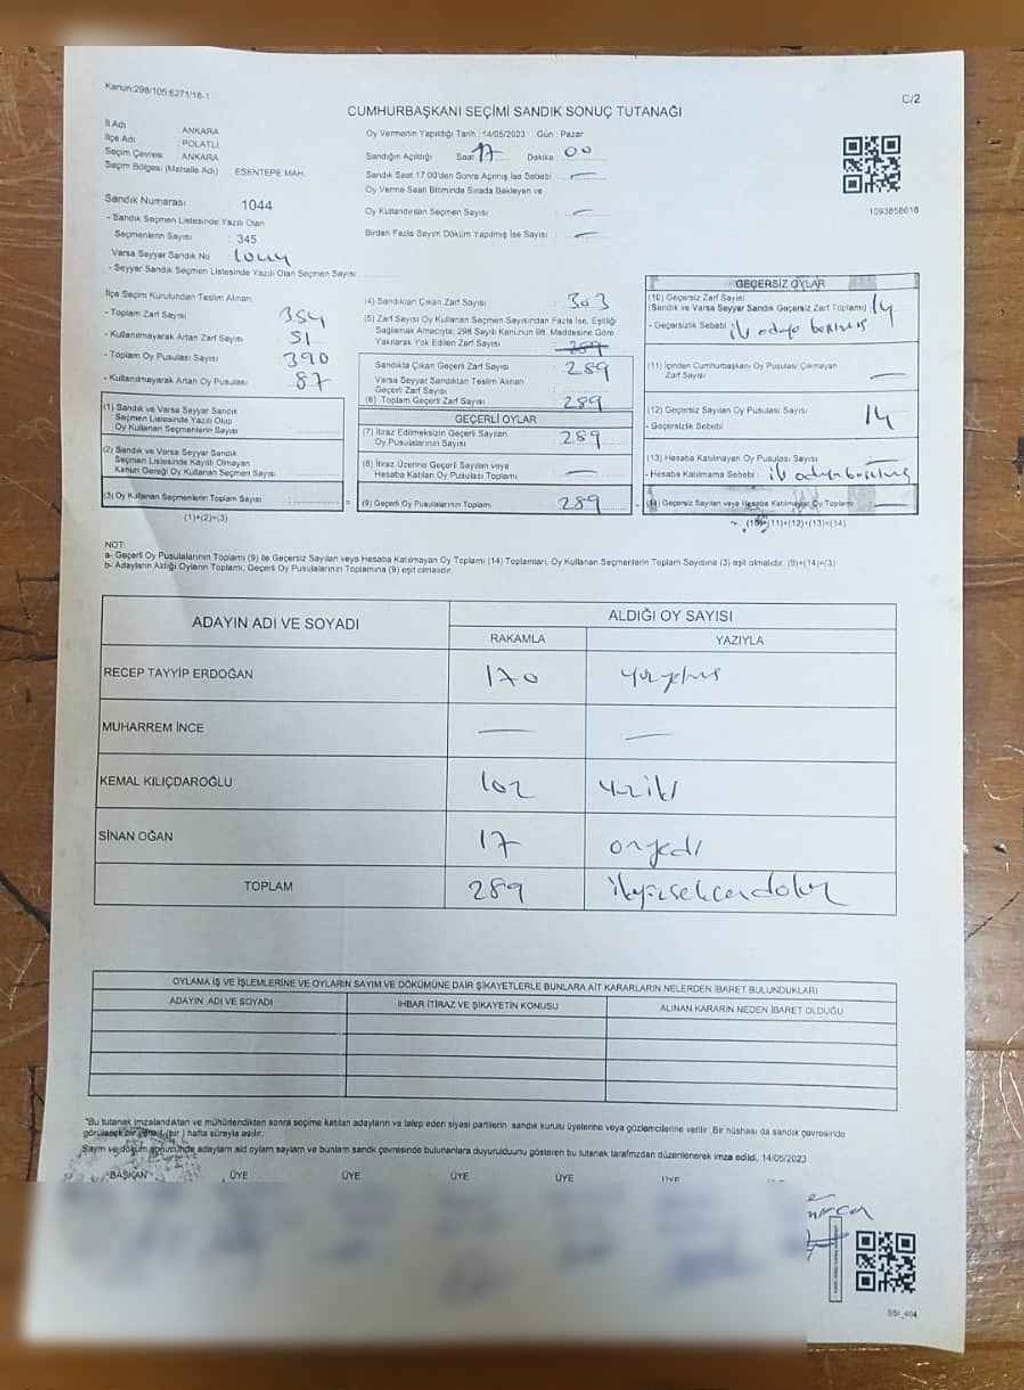 Kanun:298/105;6271/18-1
C/2
CUMHURBAŞKANI SEÇİMİ SANDIK SONUÇ TUTANAĞI
İl Adı ANKARA
İlçe Adı : POLATLI
Seçim Çevresi : ANKARA
Seçim Bölgesi (Mahalle Adı) ESENTEPE MAH.
Sandık Numarası 1044
- Sandık Seçmen Listesinde Yazılı Olan
Seçmenlerin Sayısı : 345
Varsa Seyyar Sandık No 1044
- Seyyar Sandık Seçmen Listesinde Yazılı Olan Seçmen Sayısı
Oy Vermenin Yapıldığı Tarih : 14/05/2023 Gün : Pazar
Sandığın Açıldığı Saat 17 Dakika 00
Sandık Saat 17:00'den Sonra Açılmış İse Sebebi : —
Oy Verme Saati Bitiminde Sırada Bekleyen ve
Oy Kullandırılan Seçmen Sayısı : —
Birden Fazla Sayım Döküm Yapılmış İse Sayısı : —
1093858618
İlçe Seçim Kurulundan Teslim Alınan
- Toplam Zarf Sayısı 354
- Kullanılmayarak Artan Zarf Sayısı 51
- Toplam Oy Pusulası Sayısı 390
- Kullanılmayarak Artan Oy Pusulası 87
(1) Sandık ve Varsa Seyyar Sandık
Seçmen Listesinde Yazılı Olup
Oy Kullanan Seçmenlerin Sayısı
(2) Sandık ve Varsa Seyyar Sandık
Seçmen Listesinde Kayıtlı Olmayan
Kanun Gereği Oy Kullanan Seçmen Sayısı
(3) Oy Kullanan Seçmenlerin Toplam Sayısı =
(1)+(2)=(3)
(4) Sandıktan Çıkan Zarf Sayısı 303
(5) Zarf Sayısı Oy Kullanan Seçmen Sayısından Fazla İse, Eşitliği
Sağlamak Amacıyla; 298 Sayılı Kanunun 98. Maddesine Göre
Yakılarak Yok Edilen Zarf Sayısı 289
Sandıkta Çıkan Geçerli Zarf Sayısı 289
Varsa Seyyar Sandıktan Teslim Alınan
Geçerli Zarf Sayısı
(6) Toplam Geçerli Zarf Sayısı 289
GEÇERLİ OYLAR
(7) İtiraz Edilmeksizin Geçerli Sayılan
Oy Pusulalarının Sayısı 289
(8) İtiraz Üzerine Geçerli Sayılan veya
Hesaba Katılan Oy Pusulası Toplamı —
(9) Geçerli Oy Pusulalarının Toplamı 289
GEÇERSİZ OYLAR
(10) Geçersiz Zarf Sayısı
(Sandık ve Varsa Seyyar Sandık Geçersiz Zarf Toplamı) 14
- Geçersizlik Sebebi
(11) İçinden Cumhurbaşkanı Oy Pusulası Çıkmayan
Zarf Sayısı —
(12) Geçersiz Sayılan Oy Pusulası Sayısı 14
- Geçersizlik Sebebi
(13) Hesaba Katılmayan Oy Pusulası Sayısı —
- Hesaba Katılmama Sebebi
(14) Geçersiz Sayılan veya Hesaba Katılmayan Oy Toplamı —
(10)+(11)+(12)+(13)=(14)
NOT:
a- Geçerli Oy Pusulalarının Toplamı (9) ile Geçersiz Sayılan veya Hesaba Katılmayan Oy Toplamı (14) Toplamları, Oy Kullanan Seçmenlerin Toplam Sayısına (3) eşit olmalıdır. (9)+(14)=(3)
b- Adayların Aldığı Oyların Toplamı, Geçerli Oy Pusulalarının Toplamına (9) eşit olmalıdır.
ADAYIN ADI VE SOYADI ALDIĞI OY SAYISI
RAKAMLA YAZIYLA
RECEP TAYYİP ERDOĞAN 170
MUHARREM İNCE — —
KEMAL KILIÇDAROĞLU 102 yüziki
SİNAN OĞAN 17 onyedi
TOPLAM 289 ikiyüzseksendokuz
OYLAMA İŞ VE İŞLEMLERİNE VE OYLARIN SAYIM VE DÖKÜMÜNE DAİR ŞİKAYETLERLE BUNLARA AİT KARARLARIN NELERDEN İBARET BULUNDUKLARI
ADAYIN ADI VE SOYADI İHBAR İTİRAZ VE ŞİKAYETİN KONUSU ALINAN KARARIN NEDEN İBARET OLDUĞU
"Bu tutanak imzalandıktan ve mühürlendikten sonra seçime katılan adayların ve talep eden siyasi partilerin sandık kurulu üyelerine veya gözlemcilerine verilir. Bir nüshası da sandık çevresinde
görülecek bir yere (bir) hafta süreyle asılır.
Sayım ve döküm sonucunda adayların aldığı oyların sayılarını ve bunların sandık çevresinde bulunanlara duyurulduğunu gösteren bu tutanak tarafımızdan düzenlenerek imza edildi. 14/05/2023
BAŞKAN ÜYE ÜYE ÜYE ÜYE ÜYE
SSI_404